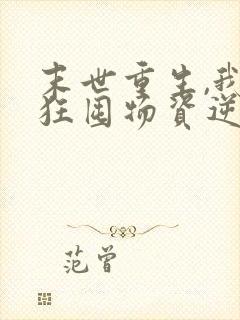 末世重生,我
狂囤物资逆
范曾